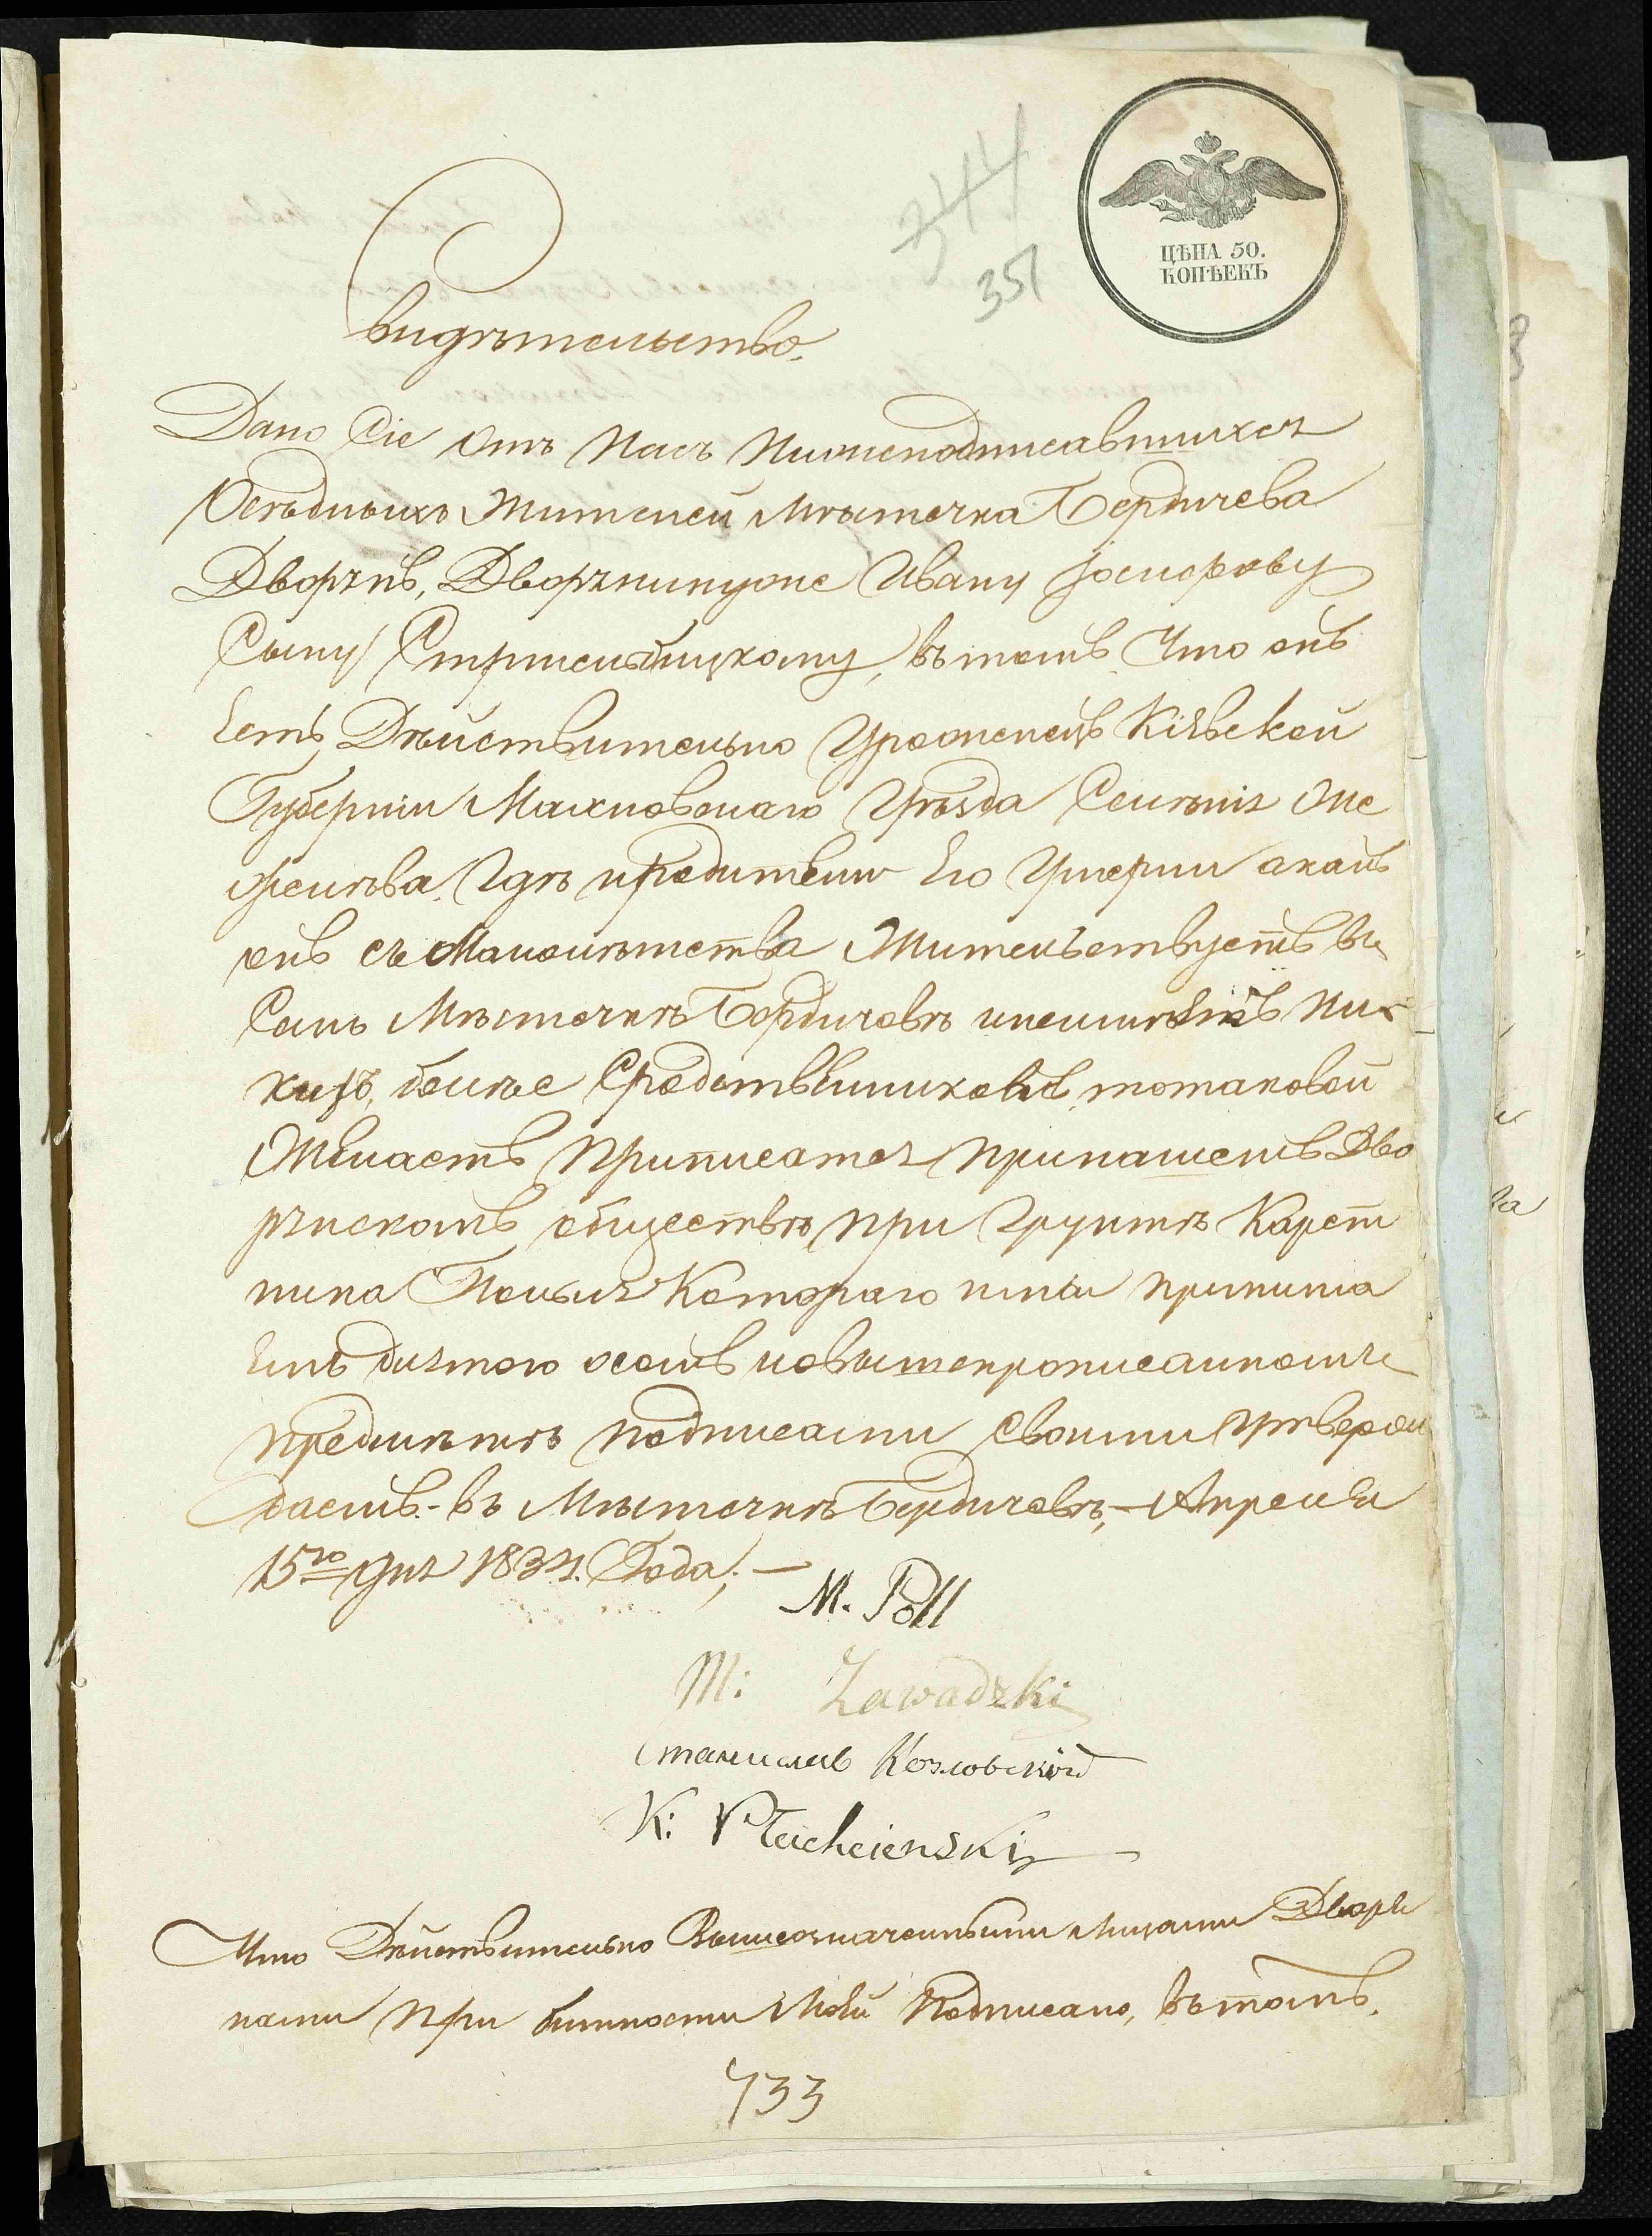 344
351
ЦѢНА 50.
КОПѢЕКЪ
Свидѣтельство.
Дано Сіе Отъ Насъ Нижеподписавшихся
Осѣдлыхъ Жителей Мѣстечка Бердичева
Дворянъ, Дворянинуже Ивану Іосифову
Сыну Стрижельбицкому, въ томъ Что онъ
Естъ Дѣйствительно Уроженецъ Кіевской
Губерніи Махновскаго Уѣзда Селѣнія Оже
Где и родители Его Умерли а какъ
онъ съ Малолѣтства Жительствуетъ въ
Семъ Мѣстечкѣ Бердичевѣ и неимѣетъ Ник
болѣе Сродственниковъ, то таковой
Желаетъ Приписатся принашемъ Дво
рянскомъ обществѣ, при Грунтѣ
Котораго и мы приняла
Ему для того осемъ и о вышепрописанномъ
предмѣтѣ подписами Своими Утверж
даемъ. - въ Мѣстечкѣ Бердичевѣ, - Апреля
15го дня 1834. Года; -
M. Poll
M: Zawadzki
Станиславъ Козловскій
K:
Что Дѣйствительно Вышеозначенными Лицами Дворя
нами При битности Моей Подписано, въ томъ.
733